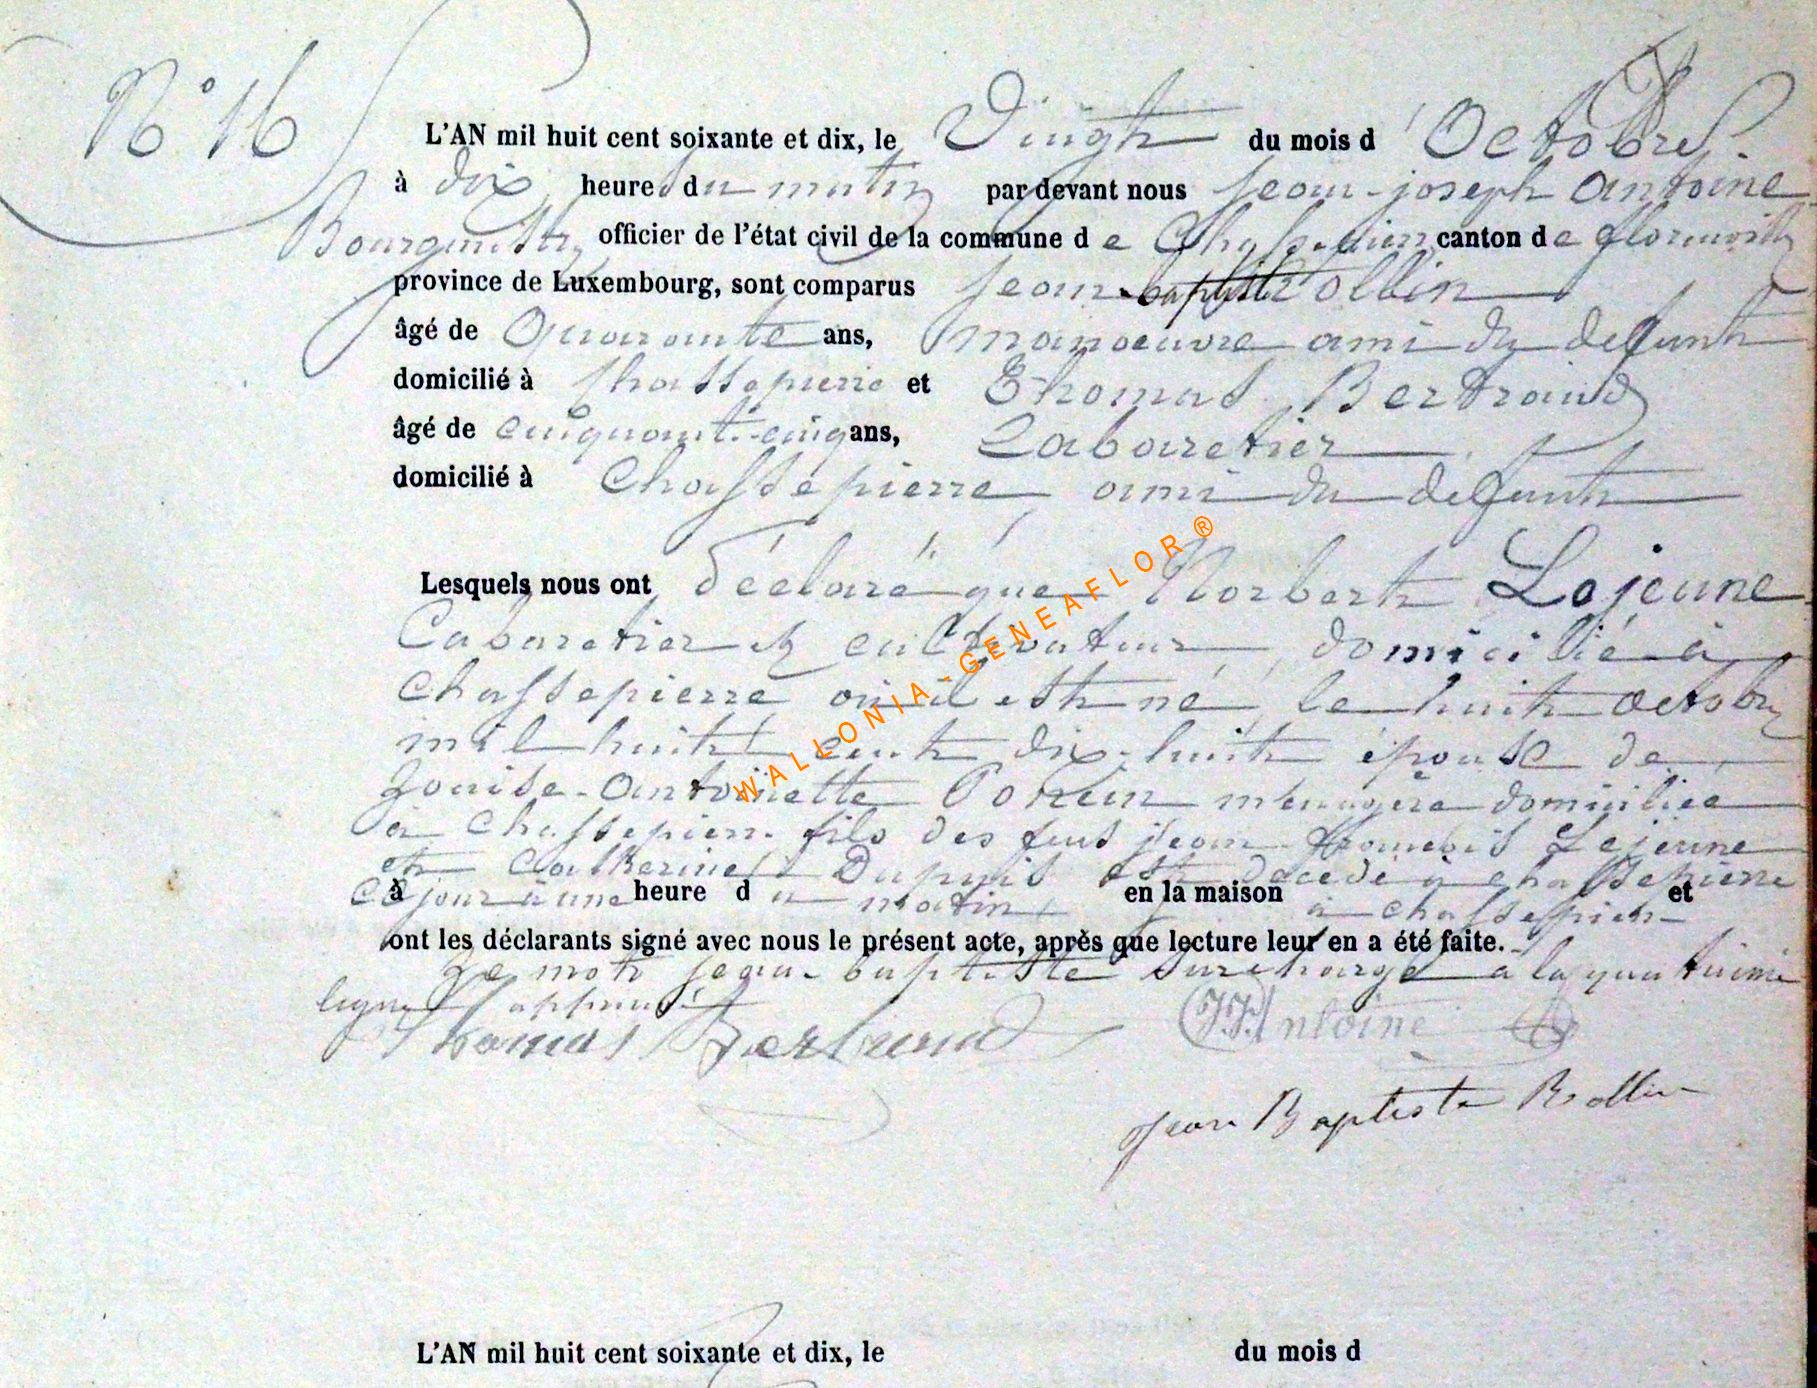 N° 16
L'AN mil huit cent soixante et dix, le Vingt du mois d'Octobre
à dix heure du matin par devant nous Jean-joseph Antoine
Bourgmestre officier de l'état civil de la commune de Chassepierre canton de florenville
province de Luxembourg, sont comparus Jean-baptiste Rollin
âgé de Quarante ans, manoeuvre ami du defunt
domicilié à Chassepierre et Thomas Bertrand
âgé de cinquante-cinq ans, Cabaretier
domicilié à Chassepierre ami du defunt
Lesquels nous ont déclaré que Norbert Lejeune
Cabaretier et cultivateur domicilié à
Chassepierre où il est né le huit octobre
mil huit cent dix-huit épouse de
Louise-Antoinette ménagère domiciliée
à Chassepierre fils des feus jean françois Lejeune
et Catherine Dupuis est décédé à chassepierre
ce jour à une heure du matin en la maison à chassepierre et
ont les déclarants signé avec nous le présent acte, après que lecture leur en a été faite.
Le mot jean-baptiste surchargé à la quatrième
ligne approuvé
Thomas Bertrand J.J. Antoine
Jean Baptiste Rollin
WALLONIA-GENEAFLOR®
L'AN mil huit cent soixante et dix, le du mois d